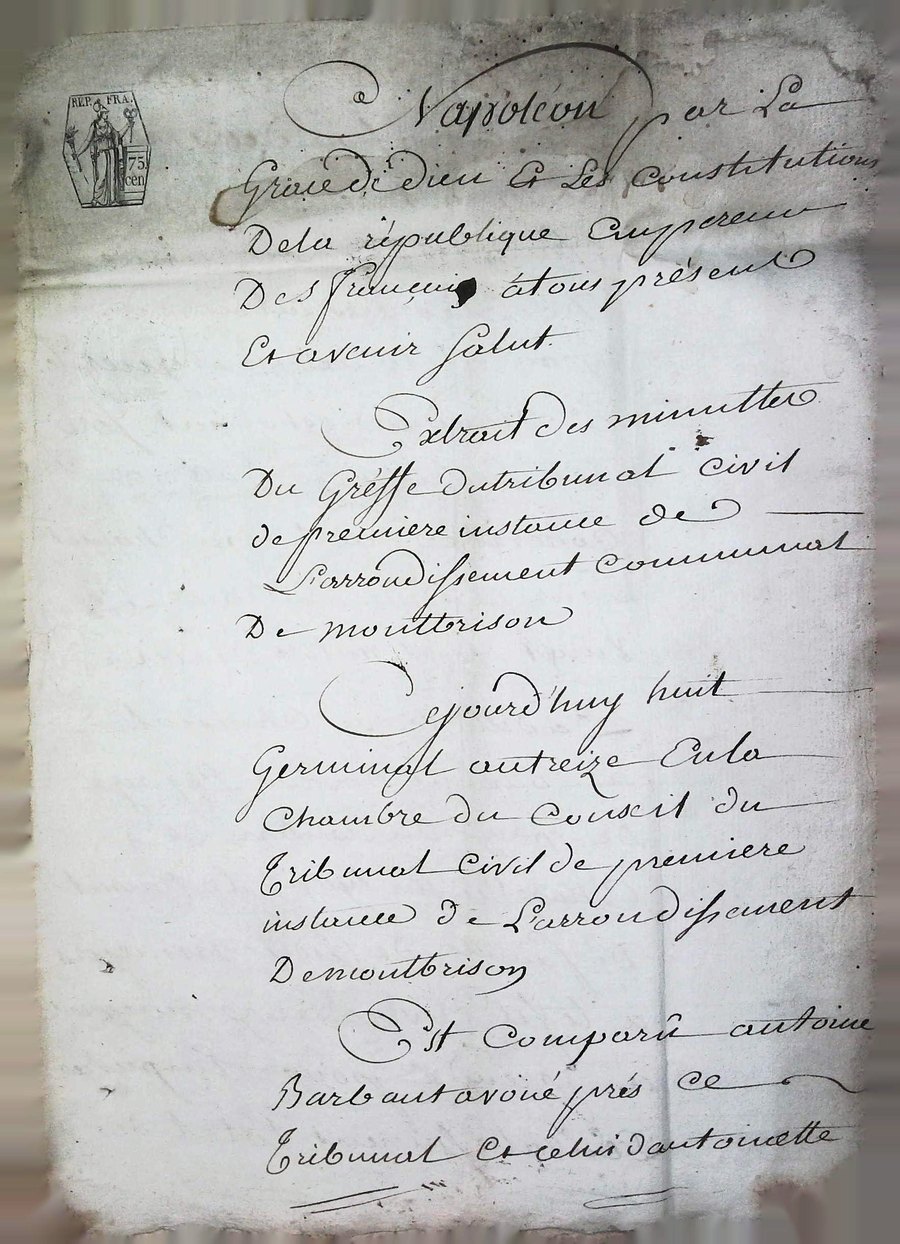 REP. FRA.
75
cen
Napoléon par La
Grace de dieu Et Les constitutions
De la république Empereur
Des français à tous présent
Et avenir Salut.
Extrait des minuttes
Du Gréffe du tribunal civil
de premiere instance de
L'arrondissement communal
De montbrison
Cejourd'huy huit
Germinal an treize En la
Chambre du Conseil du
Tribunal Civil de premiere
instance de L'arrondissement
De montbrison
Est comparû antoine
Barbant avoué prés ce
Tribunal et celui d'antoinette